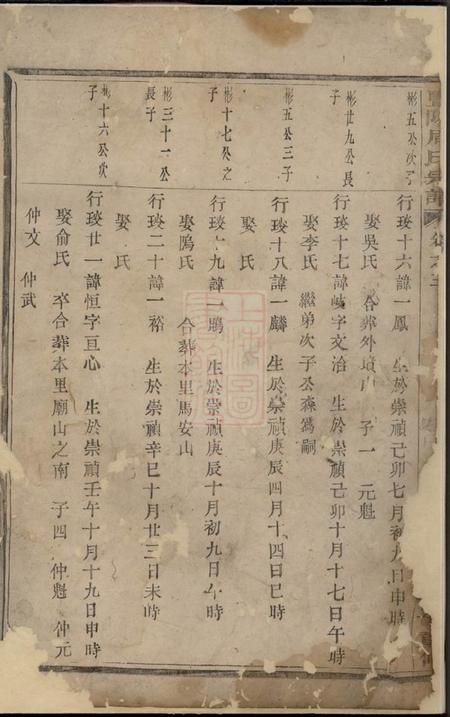 彬五公次子
行琰十六諱一鳳 生於崇禎己卯七月初九日申時
娶吳氏 合葬外墳山 子一 元魁
彬廿九公長子
行琰十七諱岐字文洽 生於崇禎己卯十月十七日午時
娶李氏 繼弟次子公森為嗣
彬五公三子
行琰十八諱一麟 生於崇禎庚辰四月十四日巳時
娶 氏
彬十七公之子
行琰十九諱一鵬 生於崇禎庚辰十月初九日午時
娶隝氏 合葬本里馬安山
彬三十一公長子
行琰二十諱一裕 生於崇禎辛巳十月廿三日未時
娶 氏
彬十六公次子
行琰廿一諱恒字亘心 生於崇禎壬午十月十九日申時
娶俞氏 卒合葬本里廟山之南 子四 仲魁 仲元
仲文 仲武